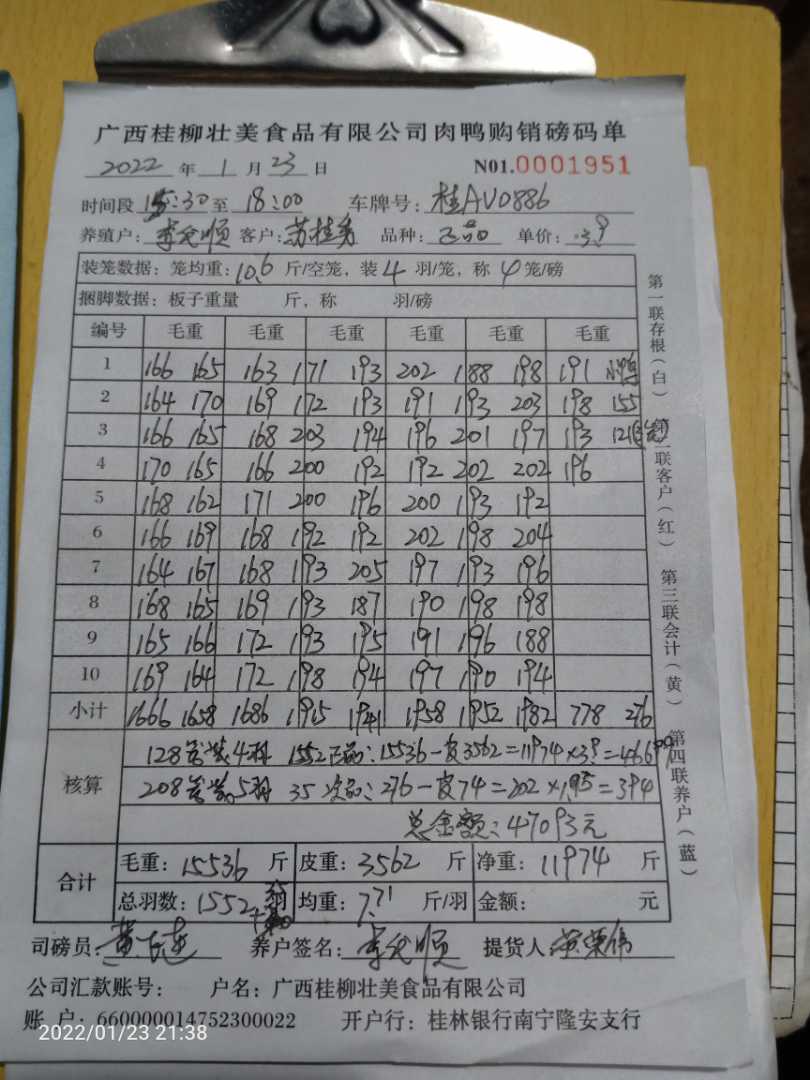 广西桂柳壮美食品有限公司肉鸭购销磅码单
2022 年 1 月 23 日 N01.0001951
时间段 15:30 至 18:00 车牌号: 桂AV0886
养殖户: 李 顺 客户: 苏桂 品种: 正品 单价: 3.9
装笼数据: 笼均重: 10.6 斤/空笼, 装 4 羽/笼, 称 4 笼/磅
捆脚数据: 板子重量 斤, 称 羽/磅
编号 毛重 毛重 毛重 毛重 毛重 毛重
1 166 165 163 171 193 202 188 198 191 小鸭
2 164 170 169 172 193 191 193 203 198 155
3 166 165 168 203 194 196 201 197 193 121
4 170 165 166 200 192 192 202 202 196
5 168 162 171 200 196 200 193 192
6 166 169 168 192 192 202 198 204
7 164 167 168 193 205 197 193 196
8 168 165 169 193 187 190 198 198
9 165 166 172 193 195 191 196 188
10 169 164 172 198 194 197 190 194
小计 1666 1658 1686 1915 1941 1958 1952 1982 778 276
核算
128笼装4羽 1552正品:15536-皮3562=11974×3.9=46699
208笼装5羽 35次品:276-皮74=202×1.95=394
总金额:47093元
合计
毛重: 15536 斤 皮重: 3562 斤 净重: 11974 斤
总羽数: 1552 +35 羽 均重: 7.71 斤/羽 金额: 元
司磅员: 黄 养户签名: 李 顺 提货人: 荣伟
公司汇款账号: 户名: 广西桂柳壮美食品有限公司
账 户: 660000014752300022 开户行: 桂林银行南宁隆安支行
2022/01/23 21:38
第一联存根(白) 第二联客户(红) 第三联会计(黄) 第四联养户(蓝)